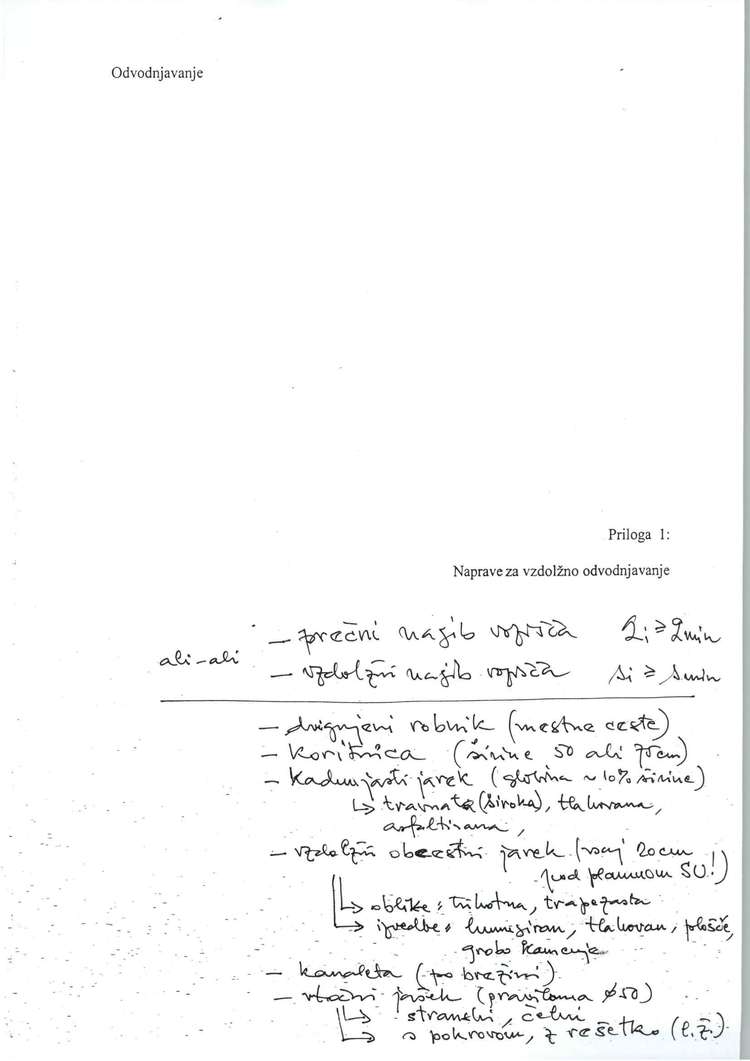 Odvodnjavanje
Priloga 1:
Naprave za vzdolžno odvodnjavanje
– prečni nagib vozišča qi ≥ qmin
ali-ali
– vzdolžni nagib vozišča si ≥ smin
– dvignjeni robnik (mestne ceste)
– koritnica (širine 50 ali 75cm)
– kadunjasti jarek (globina ~10% širine)
↳ travnata (široka), tlakovana,
asfaltirana,
– vzdolžni obcestni jarek (vsaj 20cm
pod planumom SU!)
↳ oblike: trikotna, trapezasta
↳ izvedbe: humuziran, tlakovan, plošče,
grobo kamenje
– kanaleta (po brežini)
– vtočni jašek (praviloma ø50)
↳ stranski, čelni
↳ s pokrovom, z rešetko (l.ž.)